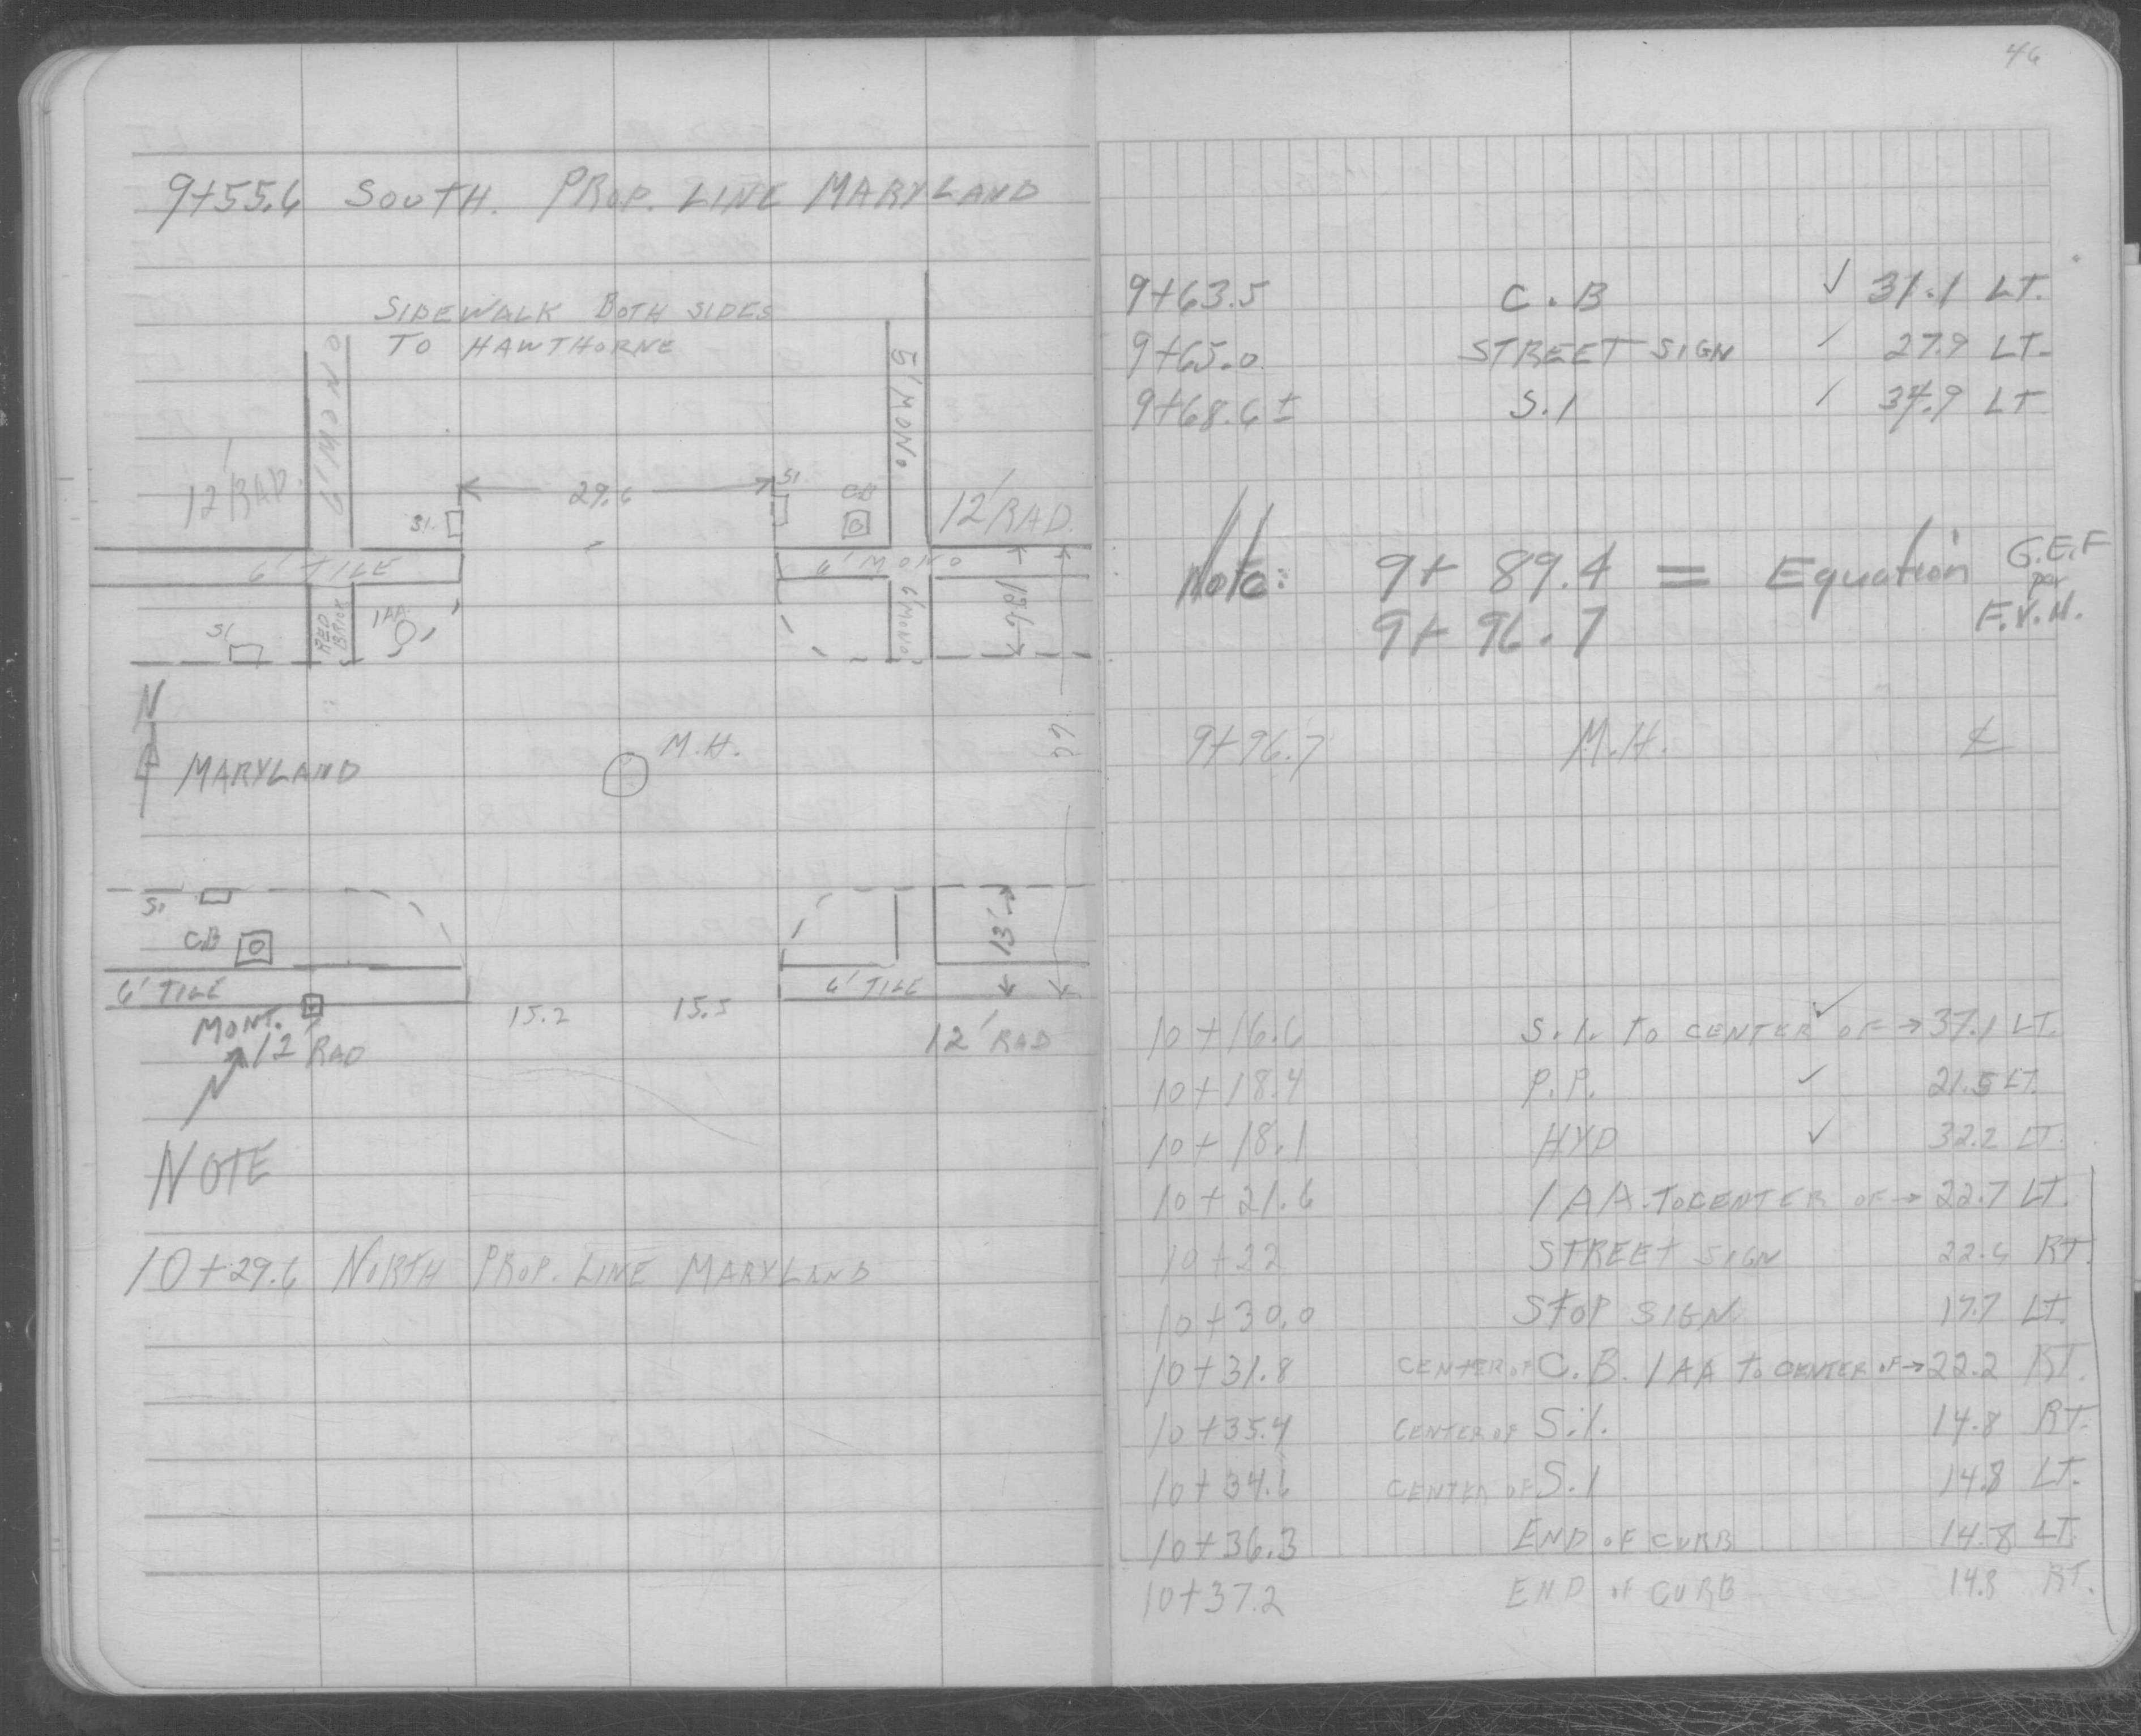 9+55.6 SOUTH. PROP. LINE MARYLAND
SIDEWALK BOTH SIDES
TO HAWTHORNE
6' MONO
5' MONO.
12' RAD.
29.6
S1
S1.
CB
12' RAD.
6' TILE
6' MONO
RED BRICK
1AA
S1
6' MONO
18.6
N
MARYLAND
M.H.
66
S1
CB
13'
6' TILE
6' TILE
MONT.
12' RAD
15.2
15.5
12' RAD
N
NOTE
10+29.6 NORTH PROP. LINE MARYLAND
46
9+63.5 C.B ✓ 31.1 LT.
9+65.0 STREET SIGN ✓ 27.9 LT.
9+68.6 ± S.1 ✓ 34.9 LT
Note: 9+ 89.4 = Equation G.E.F
9+ 96.7 per
F.V.N.
9+96.7 M.H. ℄
10+16.6 S.1. TO CENTER OF → ✓ 37.1 LT.
10+18.4 P.P. ✓ 21.5 LT.
10+18.1 HYD ✓ 32.2 LT.
10+21.6 1AA. TO CENTER OF → 22.7 LT.
10+22 STREET SIGN 22.6 RT.
10+30.0 STOP SIGN 17.7 LT.
10+31.8 CENTER OF C.B. 1AA TO CENTER OF → 22.2 RT.
10+35.4 CENTER OF S.1. 14.8 RT.
10+34.6 CENTER OF S.1 14.8 LT.
10+36.3 END OF CURB 14.8 LT.
10+37.2 END OF CURB 14.8 RT.